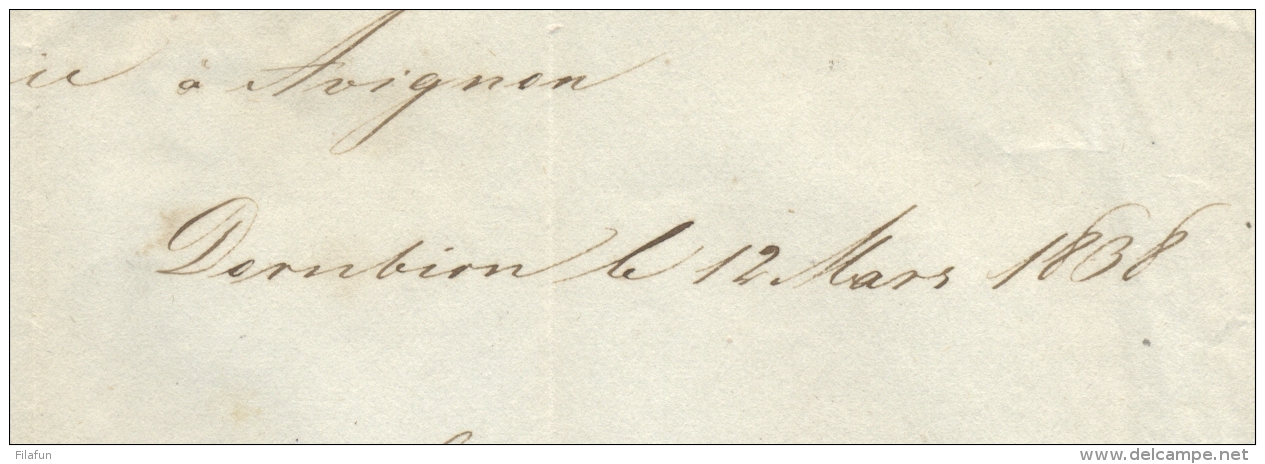 à Avignon
Dornbirn le 12 Mars 1838
Filafun
www.delcampe.net